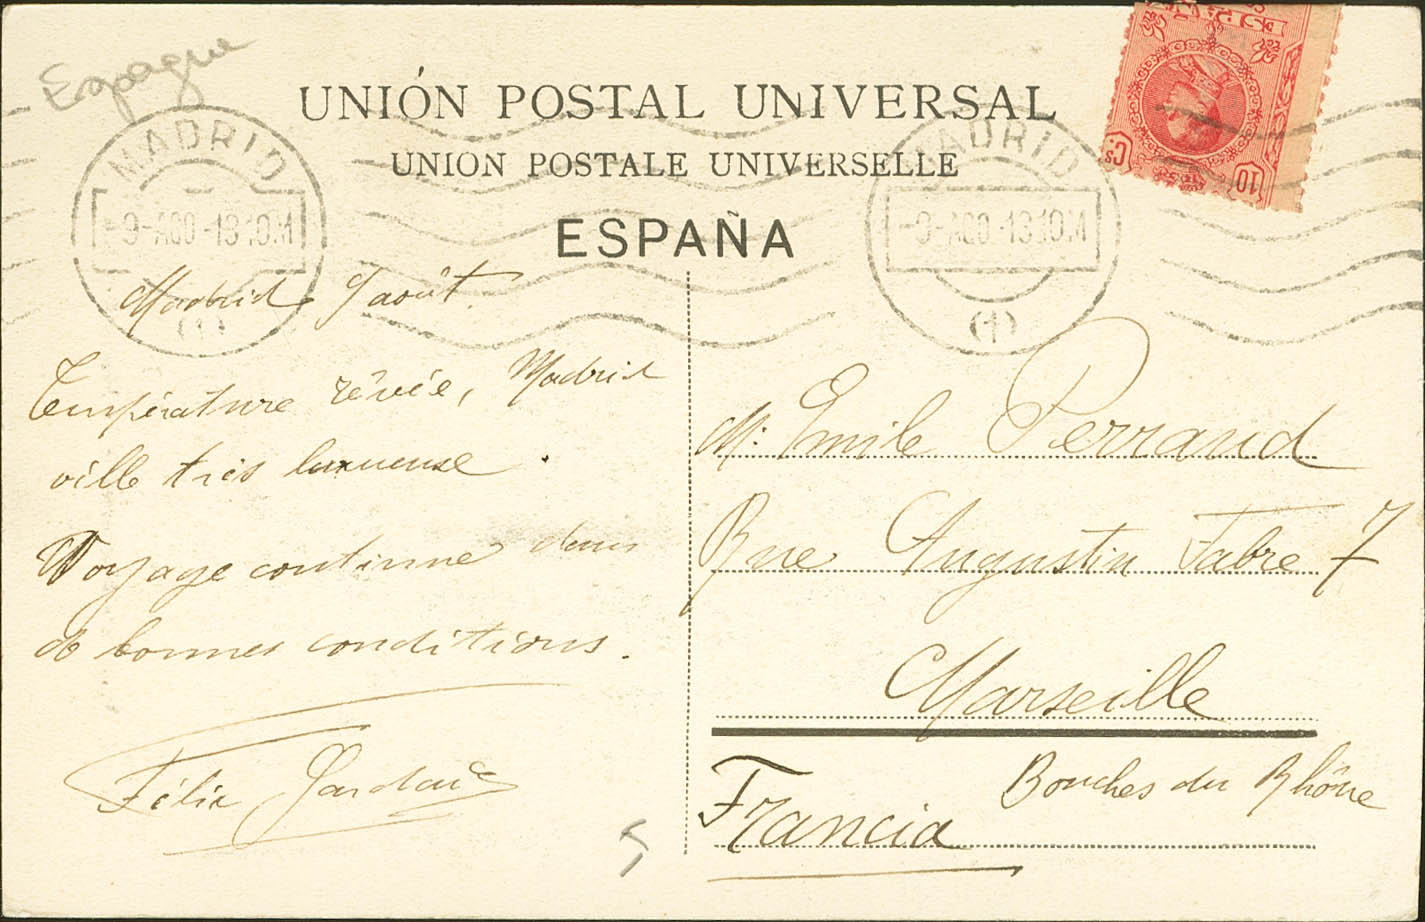 Espagne
UNIÓN POSTAL UNIVERSAL
UNION POSTALE UNIVERSELLE
ESPAÑA
MADRID
-9-AGO-13 10.M
(1)
MADRID
-9-AGO-13 10.M
(1)
ESPAÑA
10
Cs
Madrid 9 août.
Température rêvée, Madrid
ville très luxueuse.
Voyage continue dans
de bonnes conditions.
Félix
Mr. Emile Perraud
Rue Augustin Fabre 7
Marseille
Bouches du Rhône
Francia